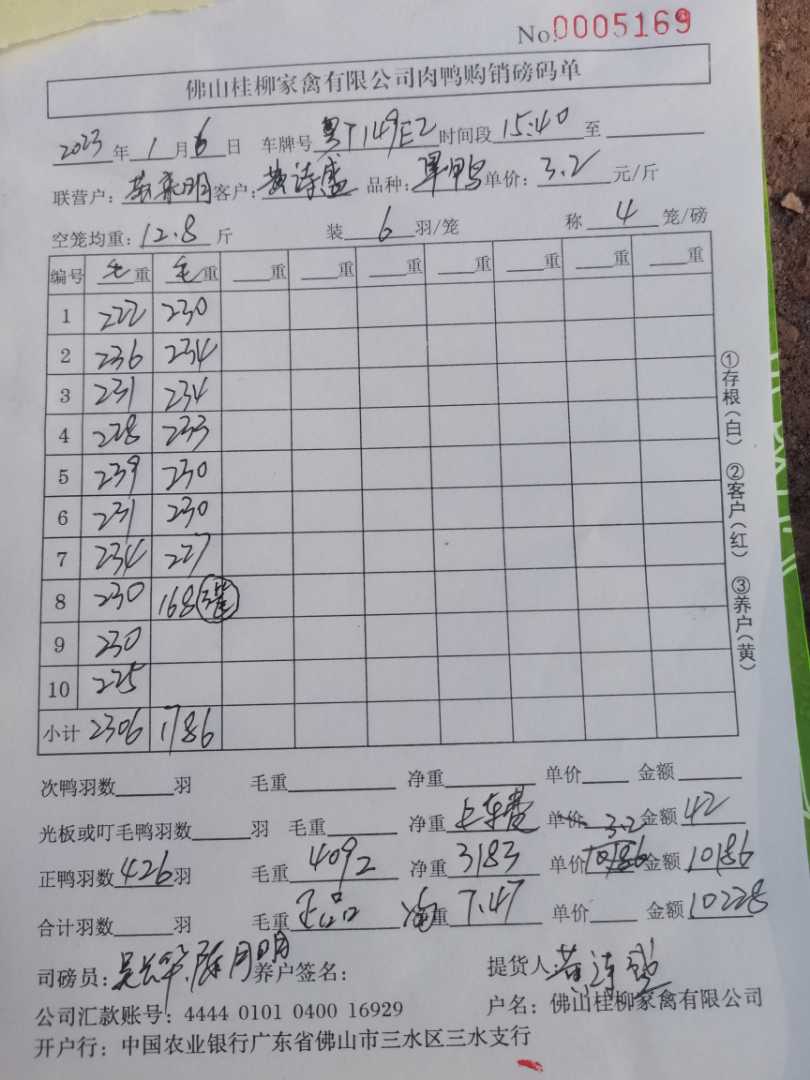 No.0005169
佛山桂柳家禽有限公司肉鸭购销磅码单
2023年1月6日 车牌号粤T149E2时间段15:40至
联营户: 客户:黄诗盛 品种:单鸭单价:3.2元/斤
空笼均重:12.8斤 装6羽/笼 称4笼/磅
编号 毛重 毛重 重 重 重 重 重 重 重
1 222 230
2 236 234
3 231 234
4 228 233
5 239 230
6 231 230
7 234 227
8 230 168
9 230
10 225
小计 2306 1786
①存根(白) ②客户(红) ③养户(黄)
次鸭羽数 羽 毛重 净重 单价 金额
光板或叮毛鸭羽数 羽 毛重 净重上车费 单价3.2金额42
正鸭羽数426羽 毛重4092 净重3183 单价10186金额10186
合计羽数 羽 毛重正品 重7.47 单价 金额10228
司磅员: 养户签名: 提货人:
公司汇款账号:4444 0101 0400 16929 户名:佛山桂柳家禽有限公司
开户行:中国农业银行广东省佛山市三水区三水支行